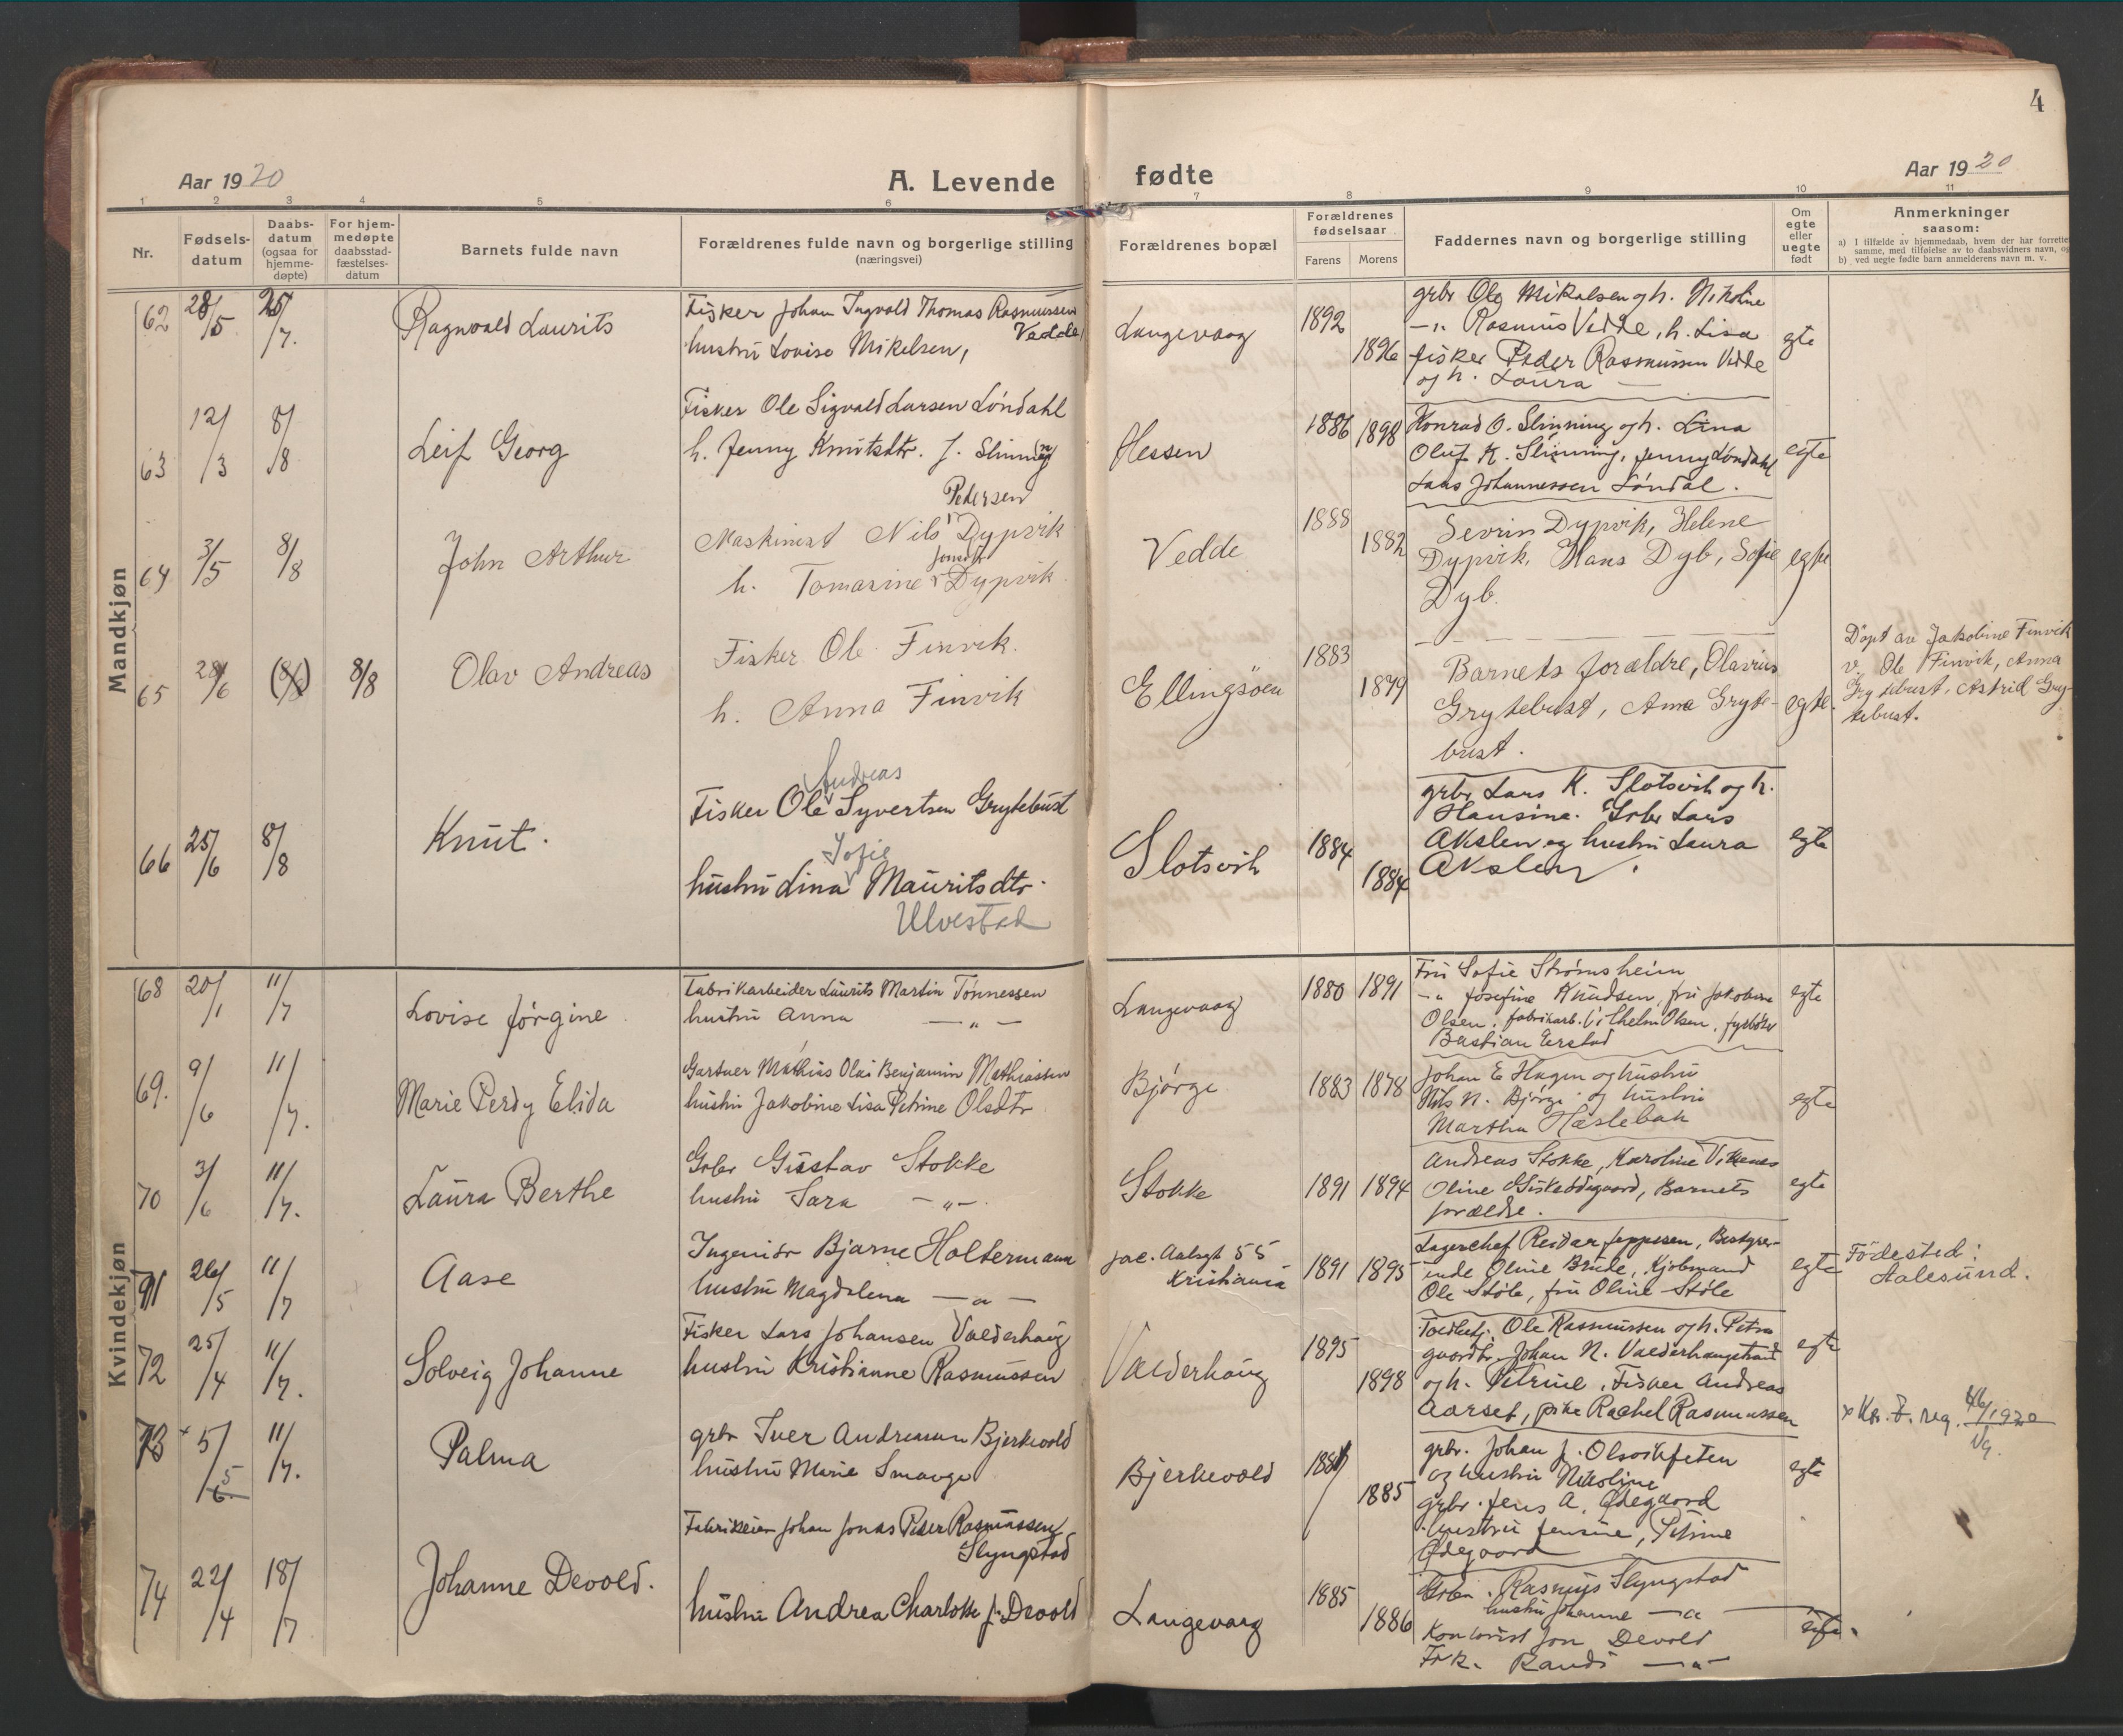 4
Aar 1920
A. Levende fødte
Aar 1920
1 2 3 4 5 6 7 8 9 10 11
Nr.
Fødsels-
datum
Daabs-
datum
(ogsaa for
hjemme-
døpte)
For hjem-
medøpte
daabsstad-
fæstelses-
datum
Barnets fulde navn
Forældrenes fulde navn og borgerlige stilling
(næringsvei)
Forældrenes bopæl
Forældrenes
fødselsaar
Farens Morens
Faddernes navn og borgerlige stilling
Om
egte
eller
uegte
født
Anmerkninger
saasom:
a) I tilfælde av hjemmedaab, hvem der har forrettet
samme, med tilføielse av to daabsvidners navn, og
b) ved uegte fødte barn anmelderens navn m. v.
Mandkjøn
62 28/5 25/7. Ragnvald Laurits
Fisker Johan Ingvald Thomas Rasmussen
Vedde
hustru Lovise Mikelsen,
Langevaag 1892 1896
grbr Ole Mikalsen og h. Nikoline
—"— Rasmus Vedde, h. Lisa
fisker Peder Rasmussen Vedde
og h. Laura —
egte
63 12/3 8/8 Leif Georg
Fisker Ole Sigvald Larsen Løndahl
h. Jenny Knutsdtr. f. Slinning
Hessen 1886 1898
Konrad O. Slinning og h. Lina
Oluf K. Slinning, Jenny Løndahl
Lars Johannessen Løndal.
egte
64 3/5 8/8 John Arthur
Pedersen
Maskinist Nils Dypvik
Jonsdtr
h. Tomasine Dypvik.
Vedde 1888 1882
Sevrin Dypvik, Helene
Dypvik, Hans Dyb, Sofie
Dyb.
egte
65 28/6 (8/8) 8/8 Olav Andreas
Fisker Ole Finvik.
h. Anna Finvik
Ellingsöen 1883 1879
Barnets forældre, Olavius
Grytebust, Anna Gryte-
bust.
egte.
Døpt av Jakobine Finvik
v. Ole Finvik, Anna
Grytebust, Astrid Gry-
tebust.
66 25/6 8/8 Knut.
Andreas
Fisker Ole Syvertsen Grytebust
Sofie
hustru Lina Mauritsdtr.
Ulvestad
Slotsvik 1884 1884
grbr Lars K. Slotsvik og h.
Hansine. Grbr Lars
Akslen og hustru Laura
Akslen.
egte
Kvindekjøn
68 20/1 11/7 Lovise Jørgine
Fabrikarbeider Laurits Martin Tønnessen
hustru Anna —"—
Langevaag 1880 1891
Fru Sofie Strømsheim
—"— Josefine Knudsen, fru Jakobine
Olsen, fabrikarb. Vilhelm Olsen, fyrbøter
Bastian Erstad
egte
69. 9/6 11/7. Marie Perdy Elida
Gartner Mathias Olai Benjamin Mathiassen
hustru Jakobine Lisa Petrine Olsdtr
Bjørge 1883 1878
Johan E Hagen og hustru
Nils N. Bjørge og hustru
Martha Hæslebak
egte
70 3/6 11/7. Laura Berthe
Grbr Gustav Stokke
hustru Sara —"—
Stokke 1891 1894
Andreas Stokke, Karoline Viknes
Oline Giskeødegaard, Barnets
forældre.
egte
71 26/5 11/7 Aase
Ingeniör Bjarne Holtermann
hustru Magdalena —"—
Jac. Aalsgt 55
Kristiania
1891 1895
Lagerchef Reidar Jeppesen, Bestyrer-
inde Oline Brude, Kjøbmand
Ole Støle, fru Oline Støle
egte
Födested:
Aalesund.
72 25/4 11/7. Solveig Johanne
Fisker Lars Johansen Valderhaug
hustru Kristianne Rasmussen
Valderhaug 1895 1898
Toldbetj. Ole Rasmussen og h. Petra
gaardbr. Johan N. Valderhaugstrand
og h. Petrine, Fisker Andreas
Aarset, pike Rachel Rasmussen
egte
73 × 5/5 6. 11/7. Palma
grbr Iver Andreassen Bjerkevold
hustru Marie Smavge
Bjerkevold 1881 1885
grbr. Johan J. Olsvikfeten
og hustru Nikoline
grbr. Jens A. Ødegaard
hustru Jensine, Petrine
Ødegaard
egte
× Kr. F. reg. 46/1920
Vg.
74 22/4 18/7 Johanne Devold.
Fabrikeier Johan Jonas Peter Rasmussen
Slyngstad
hustru Andrea Charlotte f. Devold
Langevaag 1885 1886
Grbr. Rasmus Slyngstad
hustru Johanne —"—
Kontorist Jon Devold
Frk. Randi —"—
egte.